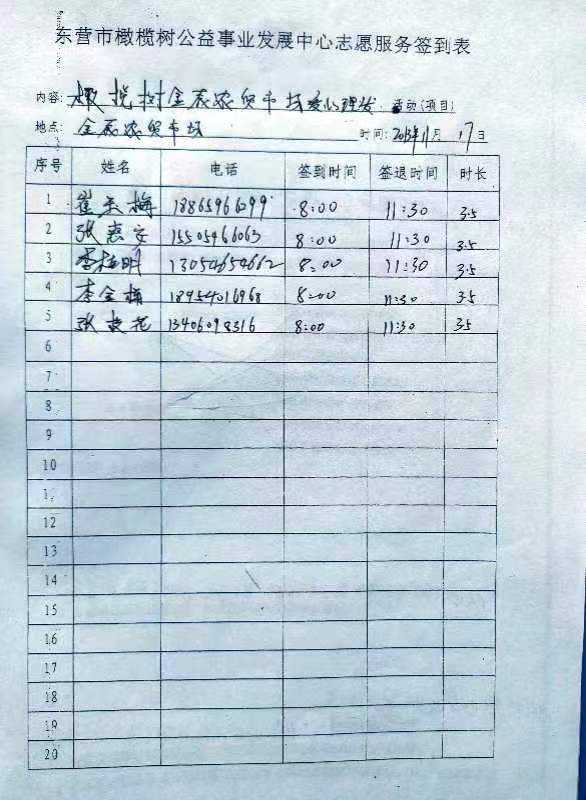 东营市橄榄树公益事业发展中心志愿服务签到表
内容: 橄榄树金辰农贸市场爱心理发 活动(项目)
地点: 金辰农贸市场 时间: 11月17日
序号 姓名 电话 签到时间 签退时间 时长
1 崔玉梅 18865966099 8:00 11:30 3.5
2 张惠安 15505466063 8:00 11:30 3.5
3 李梅明 13054654662 8:00 11:30 3.5
4 李金梅 18954016968 8:00 11:30 3.5
5 张 花 13406098316 8:00 11:30 3.5
6
7
8
9
10
1
12
13
14
15
16
17
18
19
20